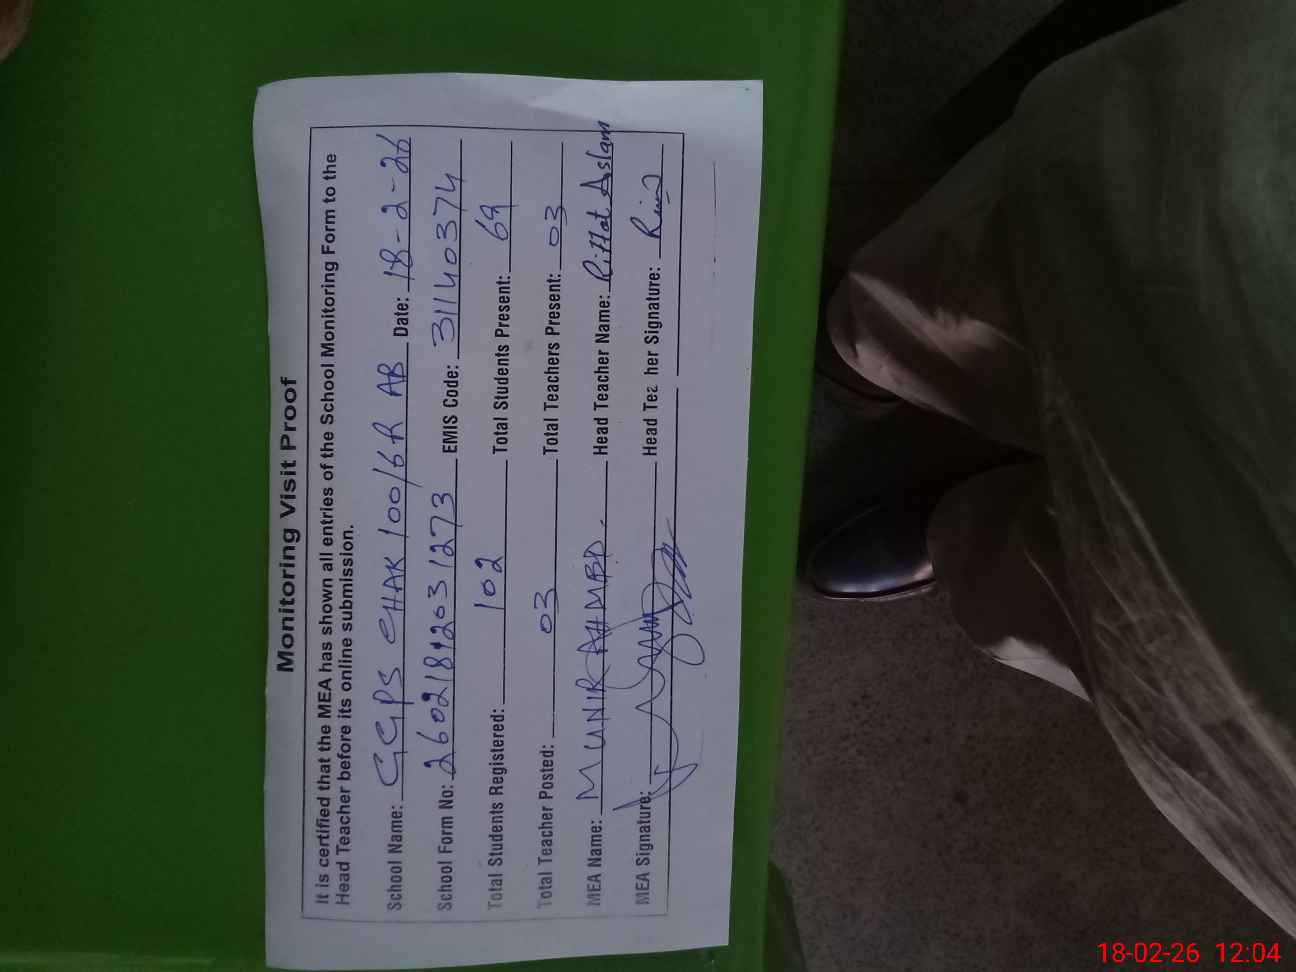 Monitoring Visit Proof
It is certified that the MEA has shown all entries of the School Monitoring Form to the
Head Teacher before its online submission.
School Name: GGPS CHAK 100/6R AB Date: 18-2-26
School Form No: 26021812031273 EMIS Code: 31140374
Total Students Registered: 102 Total Students Present: 69
Total Teacher Posted: 03 Total Teachers Present: 03
MEA Name: MUNIR AHMED. Head Teacher Name: Riffat Aslam
MEA Signature: Head Teacher Signature:
18-02-26 12:04